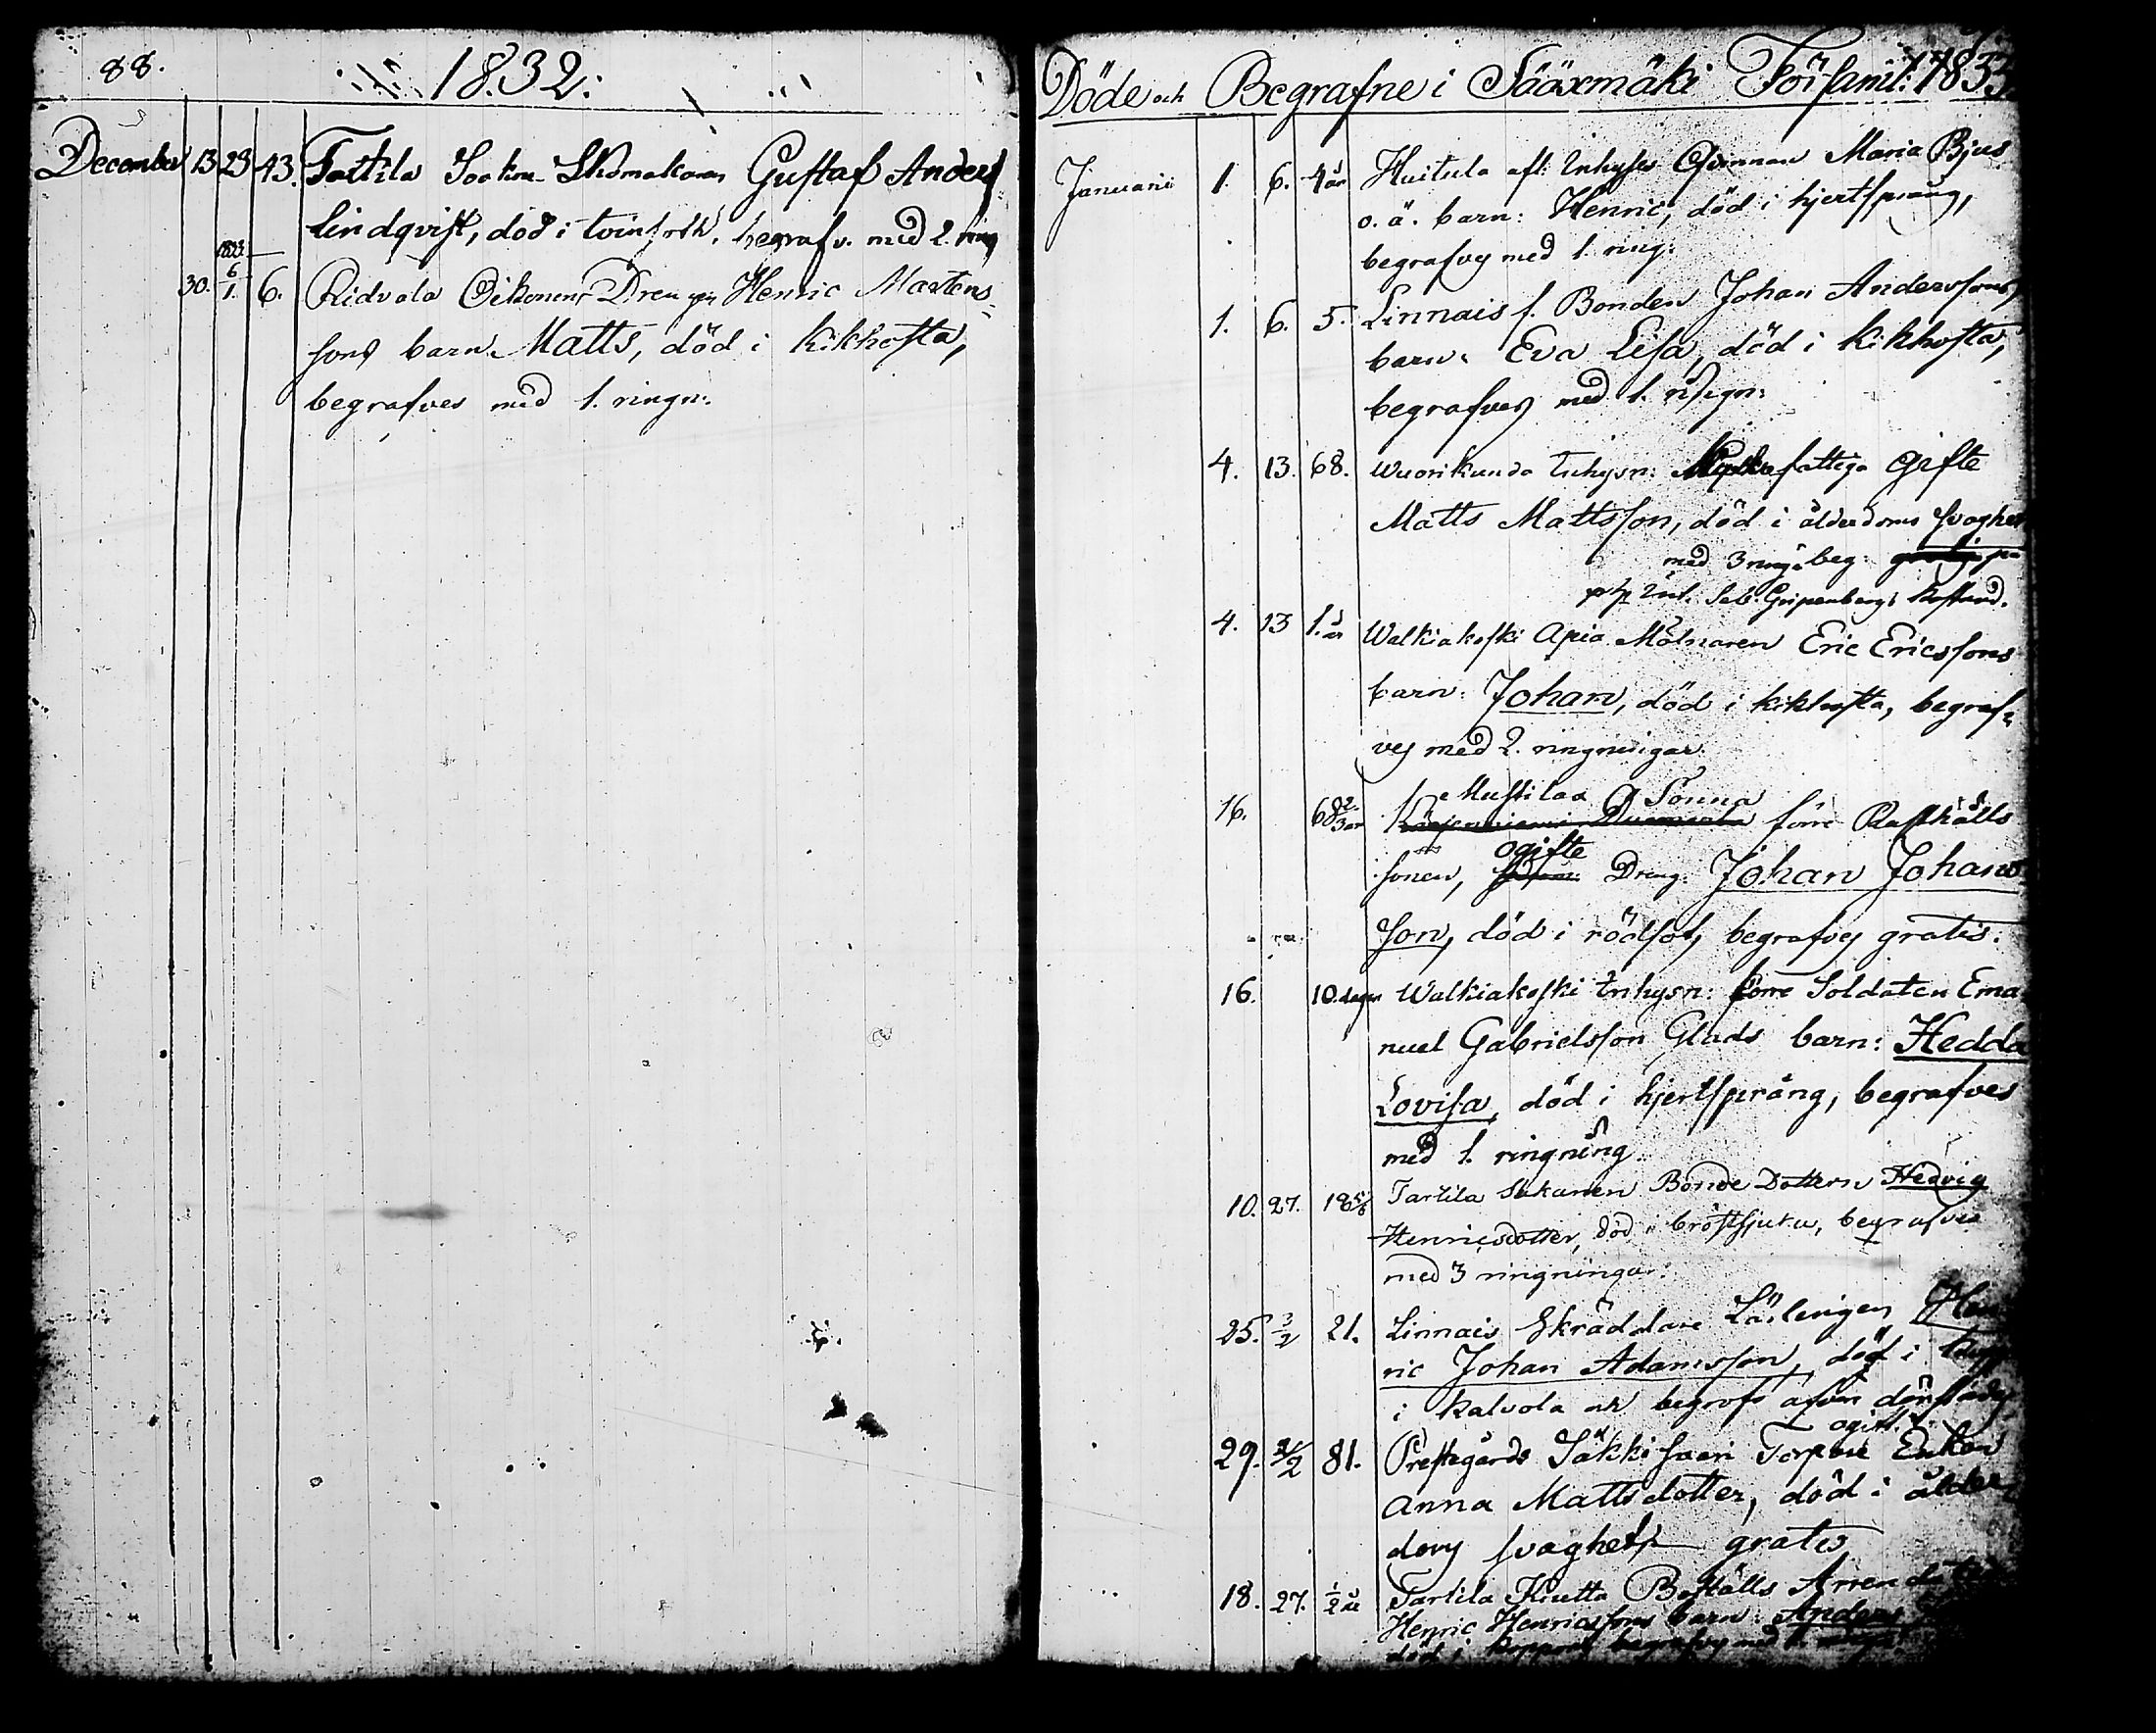 88.
1832.
December 13 23 43. Tartila Sookra Skomakaren Gustaf Anders
Lindqvist, död i tvinsott, begrafv. med 2. ring
1833.
30. 6/1. 6. Ridvala Oikonens Drengen Henric Mårtens-
sons barn Matts, död i kikhosta,
begrafves med 1. ringn:
Döde och Begrafne i Sääxmäki Församl: 1833
Januarii 1. 6. 4 år Huitula afl: Inhyses Qvinnan Maria Bjus
o. ä. barn: Henric, död i hjertsprång,
begrafves med 1. ring:
1. 6. 5. Linnais f. Bonden Johan Anderssons
barn: Eva Lisa, död i kikhosta,
begrafves med 1. ringn:
4. 13. 68. Wuorikunda Inhysn: fattiga Gifte
Matts Mattsson, död i ålderdoms svaghet
med 3 ring: beg: på
Gripenbergs kostnad.
4. 13 1. år Walkiakoski Apia Mölnaren Eric Ericssons
barn: Johan, död i kikhosta, begraf-
ves med 2. ringningar.
Mustilaa Sonna
16. 68 2/3 år förre Rusthålls
ogifte
sonen, Dreng. Johan Johans-
son, död i rödsot, begrafves gratis.
16. 10. dagar Walkiakoski Inhysn: förre Soldaten Ema-
nuel Gabrielsson Glads barn: Hedda
Lovisa, död i hjertsprång, begrafves
med 1. ringning.
10. 27. 18 5/6 Tartila Sukanen Bonde Dottern Hedvig
Henricsdotter, död i bröstsjuka, begrafves
med 3 ringningar.
25. 3/2 21. Linnais Skräddare Lärlingen Hen-
ric Johan Adamsson, död i
i Kalvola och begrofs äfven därstädes
ogift.
29. 3/2 81. Prestegårds Säkkisaari Torpare Enkan
Anna Mattsdotter, död i ålder
doms svaghet, gratis
18. 27. 1/2 år Tartila Kiutta Boställs Arrendatorn
Henric Henricssons barn: Anders
död i koppor, begrafves med